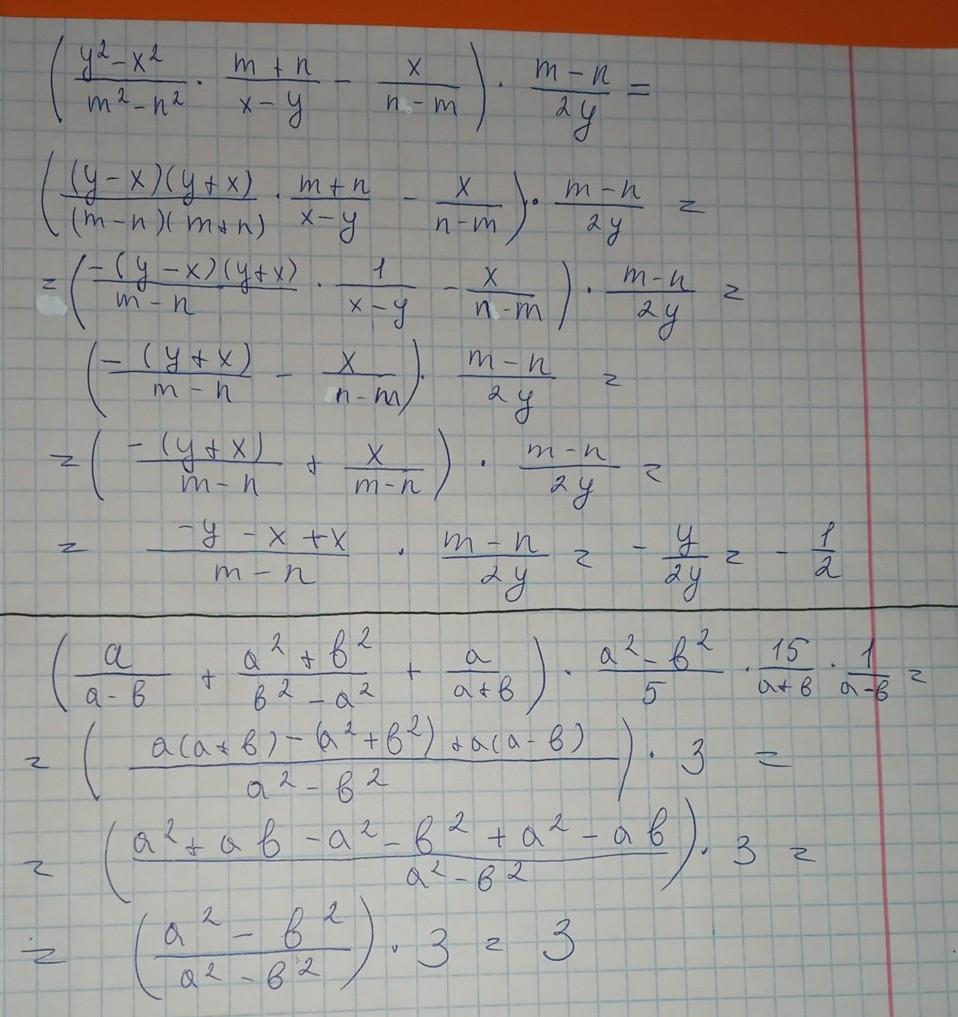 (y²-x²/m²-n² · m+n/x-y - x/n-m) · m-n/2y =
((y-x)(y+x)/(m-n)(m+n) · m+n/x-y - x/n-m) · m-n/2y =
= (-(y-x)(y+x)/m-n · 1/x-y - x/n-m) · m-n/2y =
(-(y+x)/m-n - x/n-m) · m-n/2y =
= (-(y+x)/m-n + x/m-n) · m-n/2y =
= -y-x+x/m-n · m-n/2y = -y/2y = -1/2
(a/a-в + a²+в²/в²-a² + a/a+в) · a²-в²/5 · 15/a+в · 1/a-в =
= (a(a+в)-(a²+в²)+a(a-в)/a²-в²) · 3 =
= (a²+aв-a²-в²+a²-aв/a²-в²) · 3 =
= (a²-в²/a²-в²) · 3 = 3